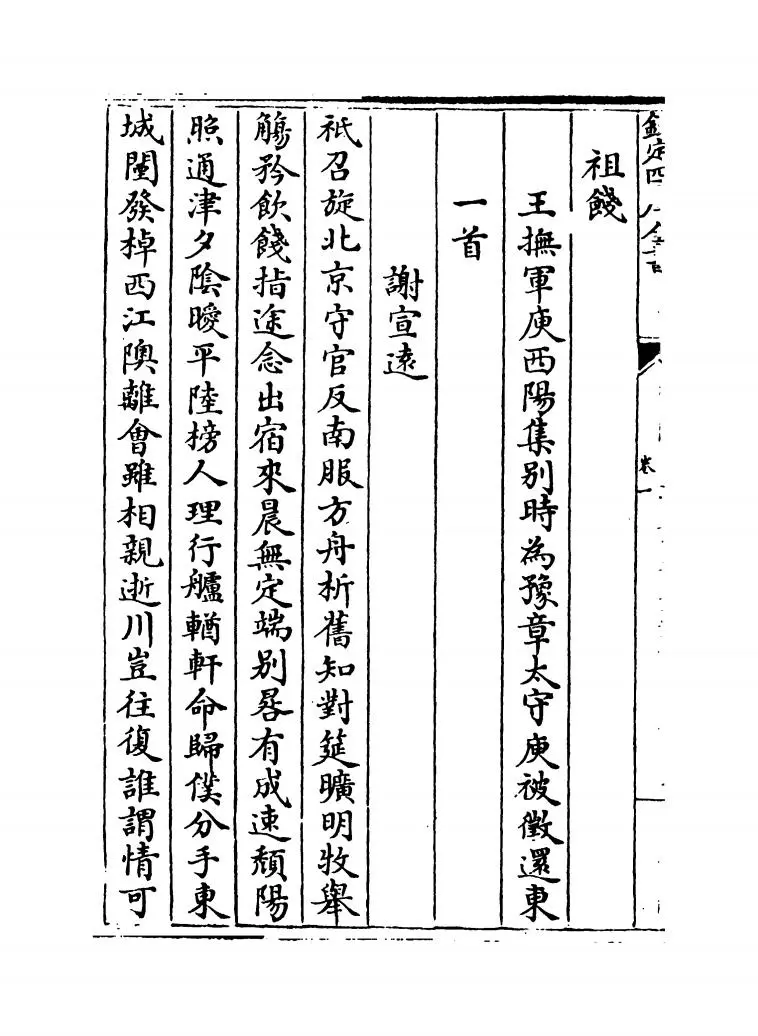 欽定四庫全書
卷一
祖餞
王撫軍庾西陽集别時為豫章太守庾被徵還東
一首
謝宣遠
祇召旋北京守官反南服方舟析舊知對筵曠明牧舉
觴矜飲餞指途念出宿來晨無定端别晷有成速頽陽
照通津夕陰曖平陸榜人理行艫輶軒命歸僕分手東
城闉發棹西江隩離會雖相親逝川豈往復誰謂情可